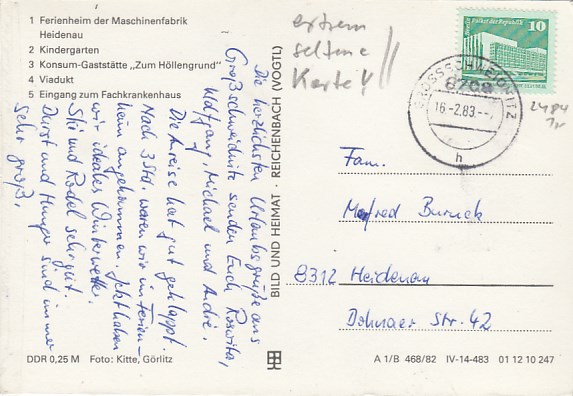 1 Ferienheim der Maschinenfabrik
Heidenau
2 Kindergarten
3 Konsum-Gaststätte „Zum Höllengrund"
4 Viadukt
5 Eingang zum Fachkrankenhaus
Die herzlichsten Urlaubsgrüße aus
Großschweidnitz senden Euch, Roswita,
Wolfgang, Michael und André.
Die Anreise hat gut geklappt.
Nach 3 Std. waren wir im Ferien-
heim angekommen. Jetzt haben
wir ideales Winterwetter.
Ski und Rodel sehr gut.
Durst und Hunger sind immer
sehr groß.
DDR 0,25 M Foto: Kitte, Görlitz
BILD UND HEIMAT · REICHENBACH (VOGTL)
extrem
seltene
Karte!!
10
Palast der Republik
DDR
GROSSSCHWEIDNITZ
8708
16-2.83.--
h
2484
Fam.
Manfred Burnck
8312 Heidenau
Dohnaer Str. 42
A 1/B 468/82 IV-14-483 01 12 10 247